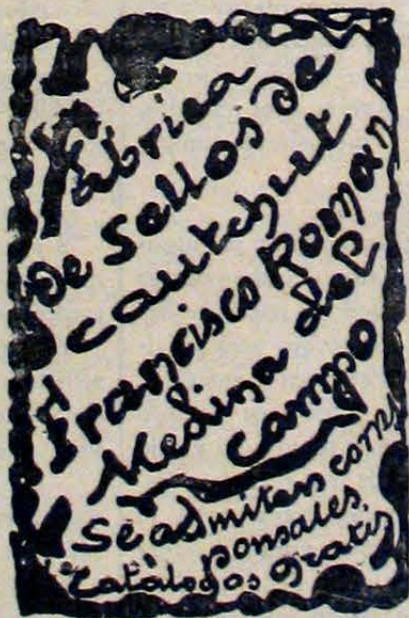 Fábrica
De Sellos de
cautchut
Francisco Roman
Medina del
campo
Se admiten corres
ponsales.
Catálogos gratis